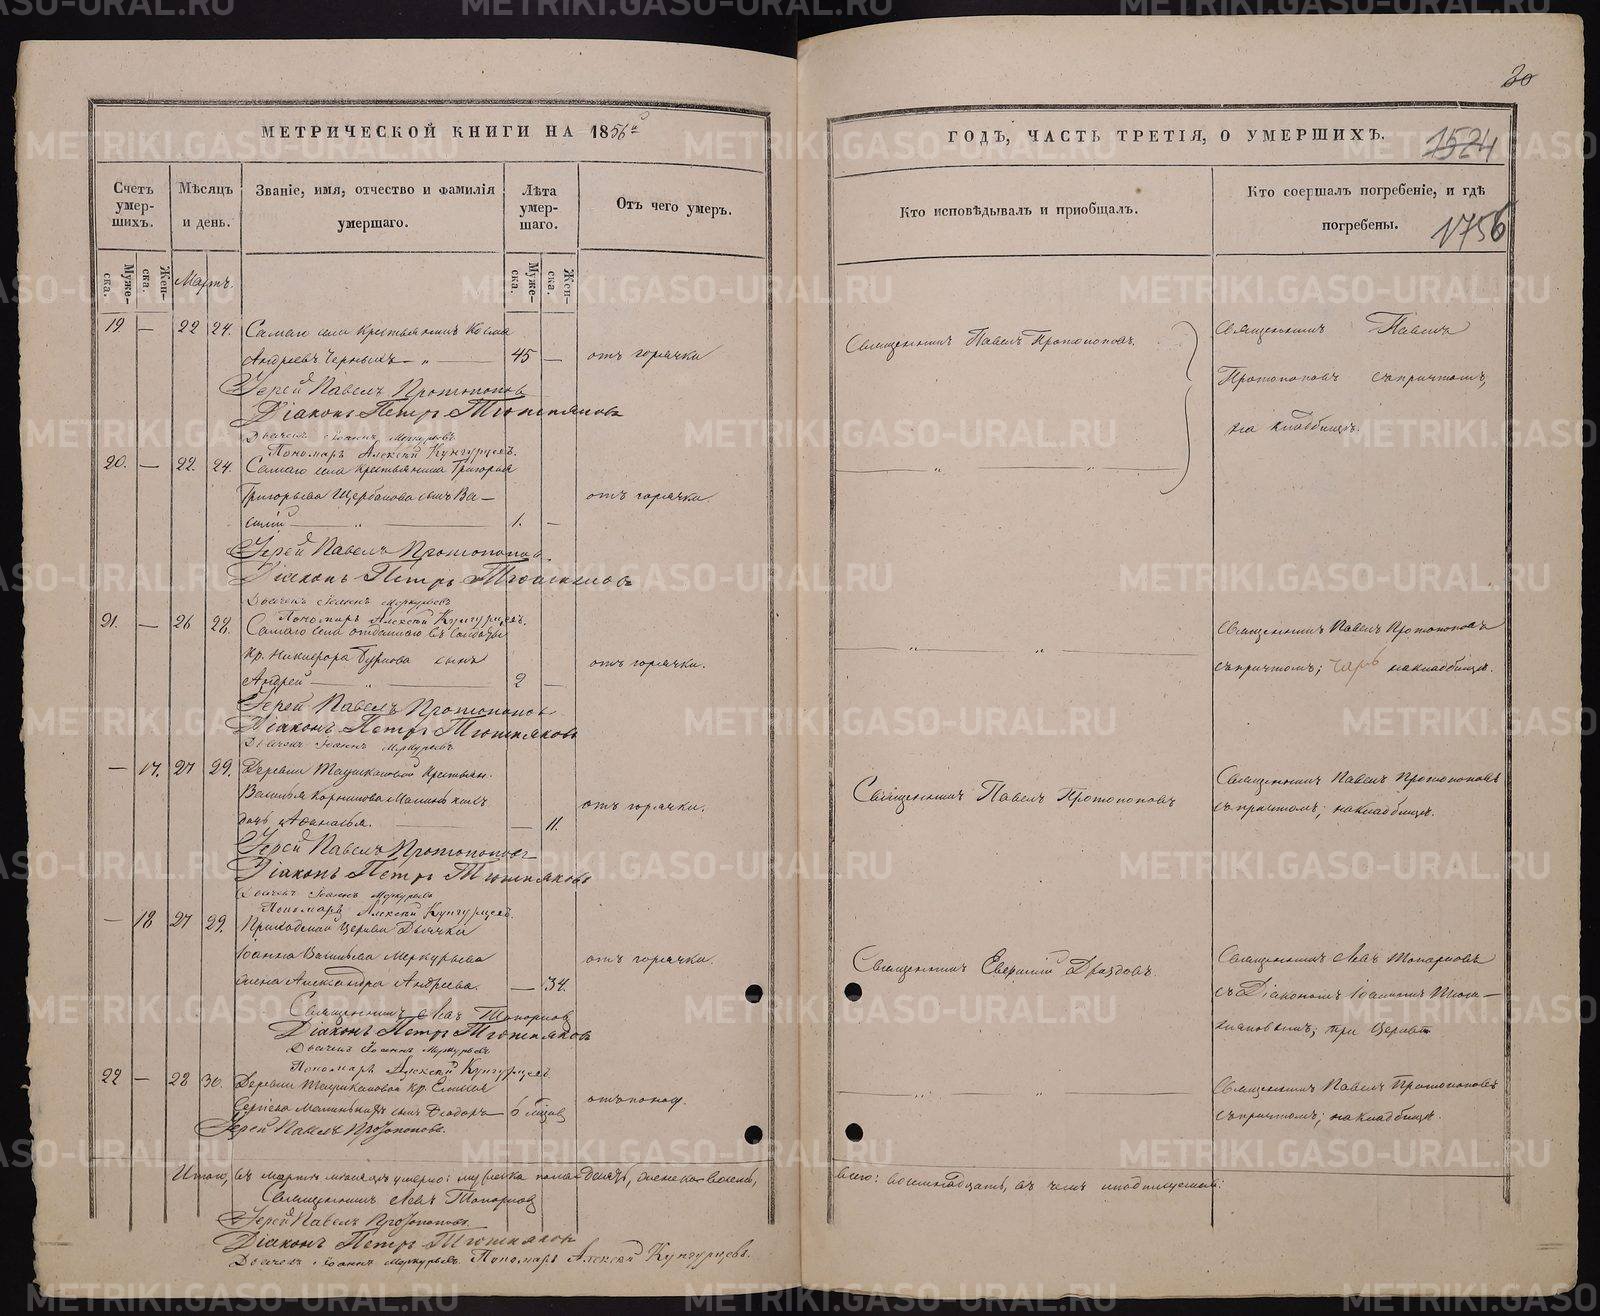 30
МЕТРИЧЕСКОЙ КНИГИ НА 1856й
ГОДЪ, ЧАСТЬ ТРЕТІЯ, О УМЕРШИХЪ.
1524
1756
Счетъ умер-шихъ.
Мѣсяцъ и день.
Званіе, имя, отчество и фамилія умершаго.
Лѣта умер-шаго.
Отъ чего умеръ.
Кто исповѣдывалъ и приобщалъ.
Кто соершалъ погребеніе, и гдѣ погребены.
Муже-ска.
Жен-ска.
Мартъ.
Муже-ска.
Жен-ска.
19 — 22 24. Самаго села крестьянинъ Косма
Андреевъ Черныхъ — 45 — отъ горячки
Священникъ Павелъ Протопоповъ.
Священникъ Павелъ
Протопоповъ съ причтомъ,
на кладбищѣ.
Іерей Павелъ Протопопов
Діаконъ Петръ Тюшняковъ
Дьячекъ Іоаннъ Меркурьевъ
Пономарь Алексѣй Кунгурцевъ.
20. — 22. 24. Самаго села крестьянина Григорья
Григорьева Щербакова сынъ Ва-
силій — 1. — отъ горячки.
Іерей Павелъ Протопопов.
Діаконъ Петръ Тюшняковъ
Дьячекъ Іоаннъ Меркурьевъ
Пономарь Алексѣй Кунгурцевъ.
21. — 26 28. Самаго села отданнаго въ солдаты
Кр. Никифора сынъ
Андрей — 2 — отъ горячки.
Священникъ Павелъ Протопоповъ
съ причтомъ; на кладбищѣ.
Іерей Павелъ Протопопов
Діаконъ Петръ Тюшняковъ
Дьячекъ Іоаннъ Меркурьевъ
— 17. 27 29. Деревни Таушкановой крестьян.
Василья Корнилова Малинькихъ
дочь Афанасья. — 11. отъ горячки.
Священникъ Павелъ Протопоповъ
Священникъ Павелъ Протопоповъ
съ причтомъ; на кладбищѣ.
Іерей Павелъ Протопопов
Діаконъ Петръ Тюшняковъ
Дьячекъ Іоаннъ Меркурьевъ
Пономарь Алексѣй Кунгурцевъ.
— 18 27 29. Приходской Церкви Дьячка
Іоанна Васильева Меркурьева
жена Александра Андреева. — 34. отъ горячки.
Священникъ Дроздовъ.
Священникъ Левъ Топорковъ
съ Діакономъ Іоанномъ
при Церкви
Священникъ Левъ Топорков
Діаконъ Петръ Тюшняковъ
Дьячекъ Іоаннъ Меркурьевъ
Пономарь Алексѣй Кунгурцевъ.
22 — 28 30. Деревни Таушкановой кр.
Сергѣева Малинькихъ сынъ Ѳеодоръ — 6 мѣсяц отъ поноса.
Священникъ Павелъ Протопоповъ
съ причтомъ; на кладбищѣ.
Іерей Павелъ Протопоповъ.
Итого, въ мартѣ мѣсяцѣ умерло: мужеска пола десять, женска восемь,
всего: восемнадцать, въ чемъ и подписуемся:
Священникъ Левъ Топорков
Іерей Павелъ Протопоповъ
Діаконъ Петръ Тюшняков
Дьячекъ Іоаннъ Меркурьевъ. Пономарь Алексѣй Кунгурцевъ.
METRIKI.GASO-URAL.RU